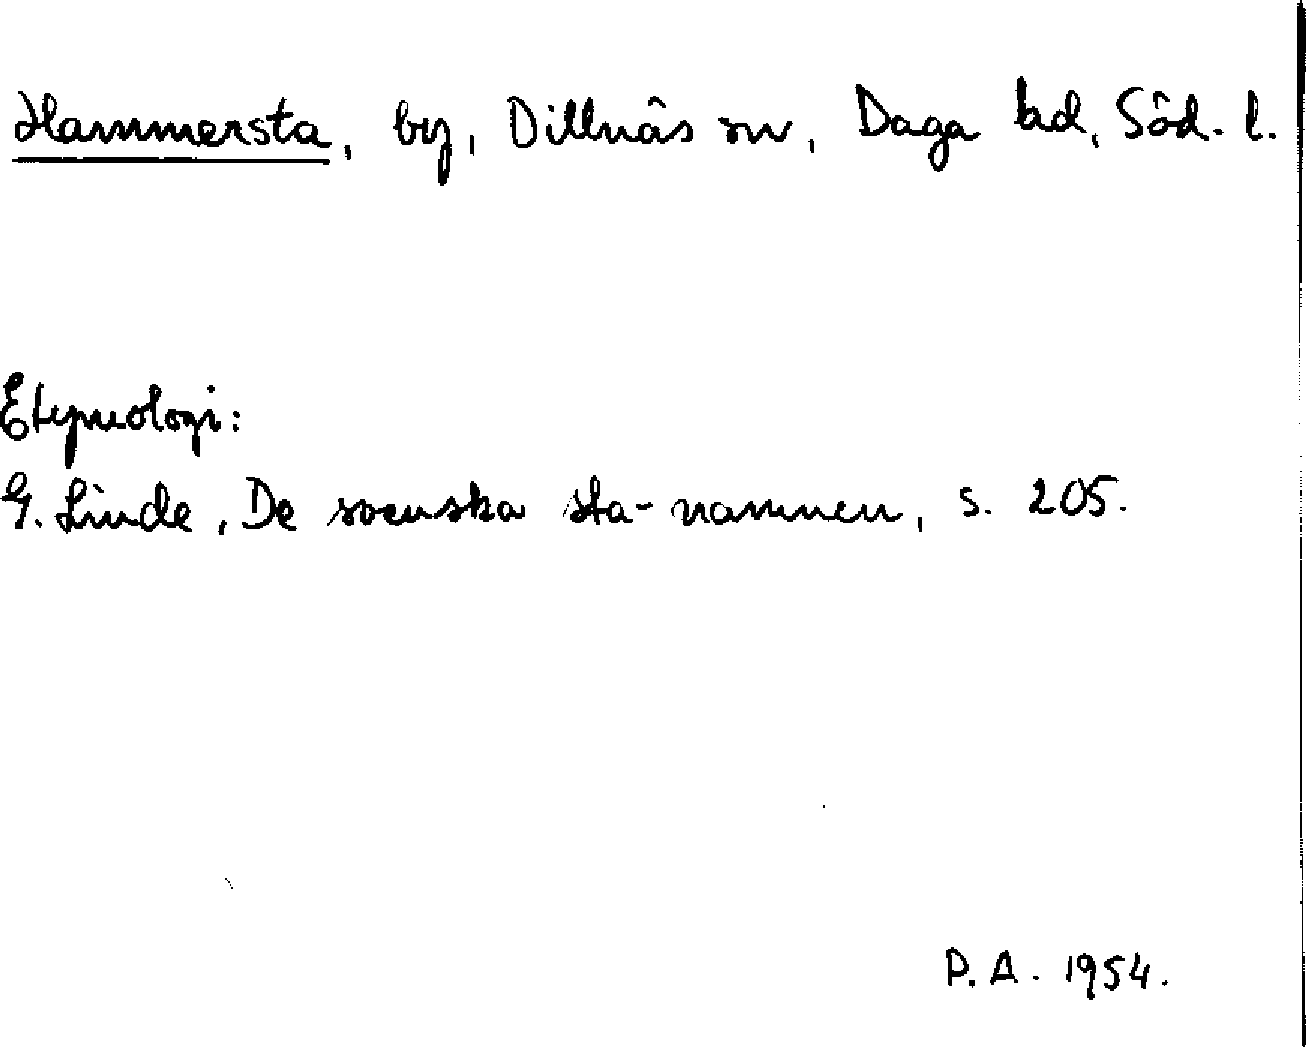 Hammersta, by, Dillnäs sn, Daga hd, Söd. l.
Etymologi:
G. Linde, De svenska sta-namnen, s. 205.
P. A. 1954.